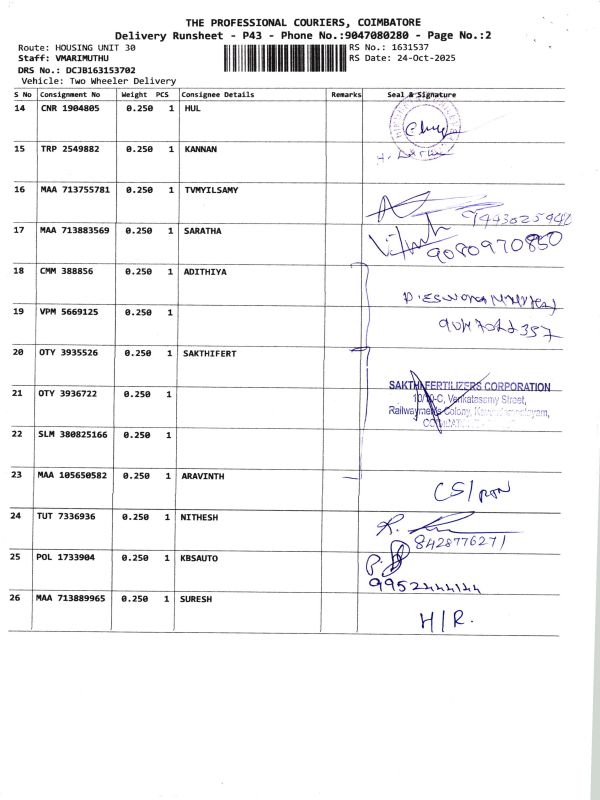 THE PROFESSIONAL COURIERS, COIMBATORE
Delivery Runsheet - P43 - Phone No.:9047080280 - Page No.:2
Route: HOUSING UNIT 30 RS No.: 1631537
Staff: VMARIMUTHU RS Date: 24-Oct-2025
DRS No.: DCJB163153702
Vehicle: Two Wheeler Delivery
S No Consignment No Weight PCS Consignee Details Remarks Seal & Signature
14 CNR 1904805 0.250 1 HUL
15 TRP 2549882 0.250 1 KANNAN
16 MAA 713755781 0.250 1 TVMYILSAMY
17 MAA 713883569 0.250 1 SARATHA
9080970850
18 CMM 388856 0.250 1 ADITHIYA
19 VPM 5669125 0.250 1
20 OTY 3935526 0.250 1 SAKTHIFERT
SAKTHI FERTILIZERS CORPORATION
21 OTY 3936722 0.250 1
10/10-C, Venkatasamy Street,
Colony,
22 SLM 380825166 0.250 1
23 MAA 105650582 0.250 1 ARAVINTH
24 TUT 7336936 0.250 1 NITHESH
8428776271
25 POL 1733904 0.250 1 KBSAUTO
9952444144
26 MAA 713889965 0.250 1 SURESH
H/R.